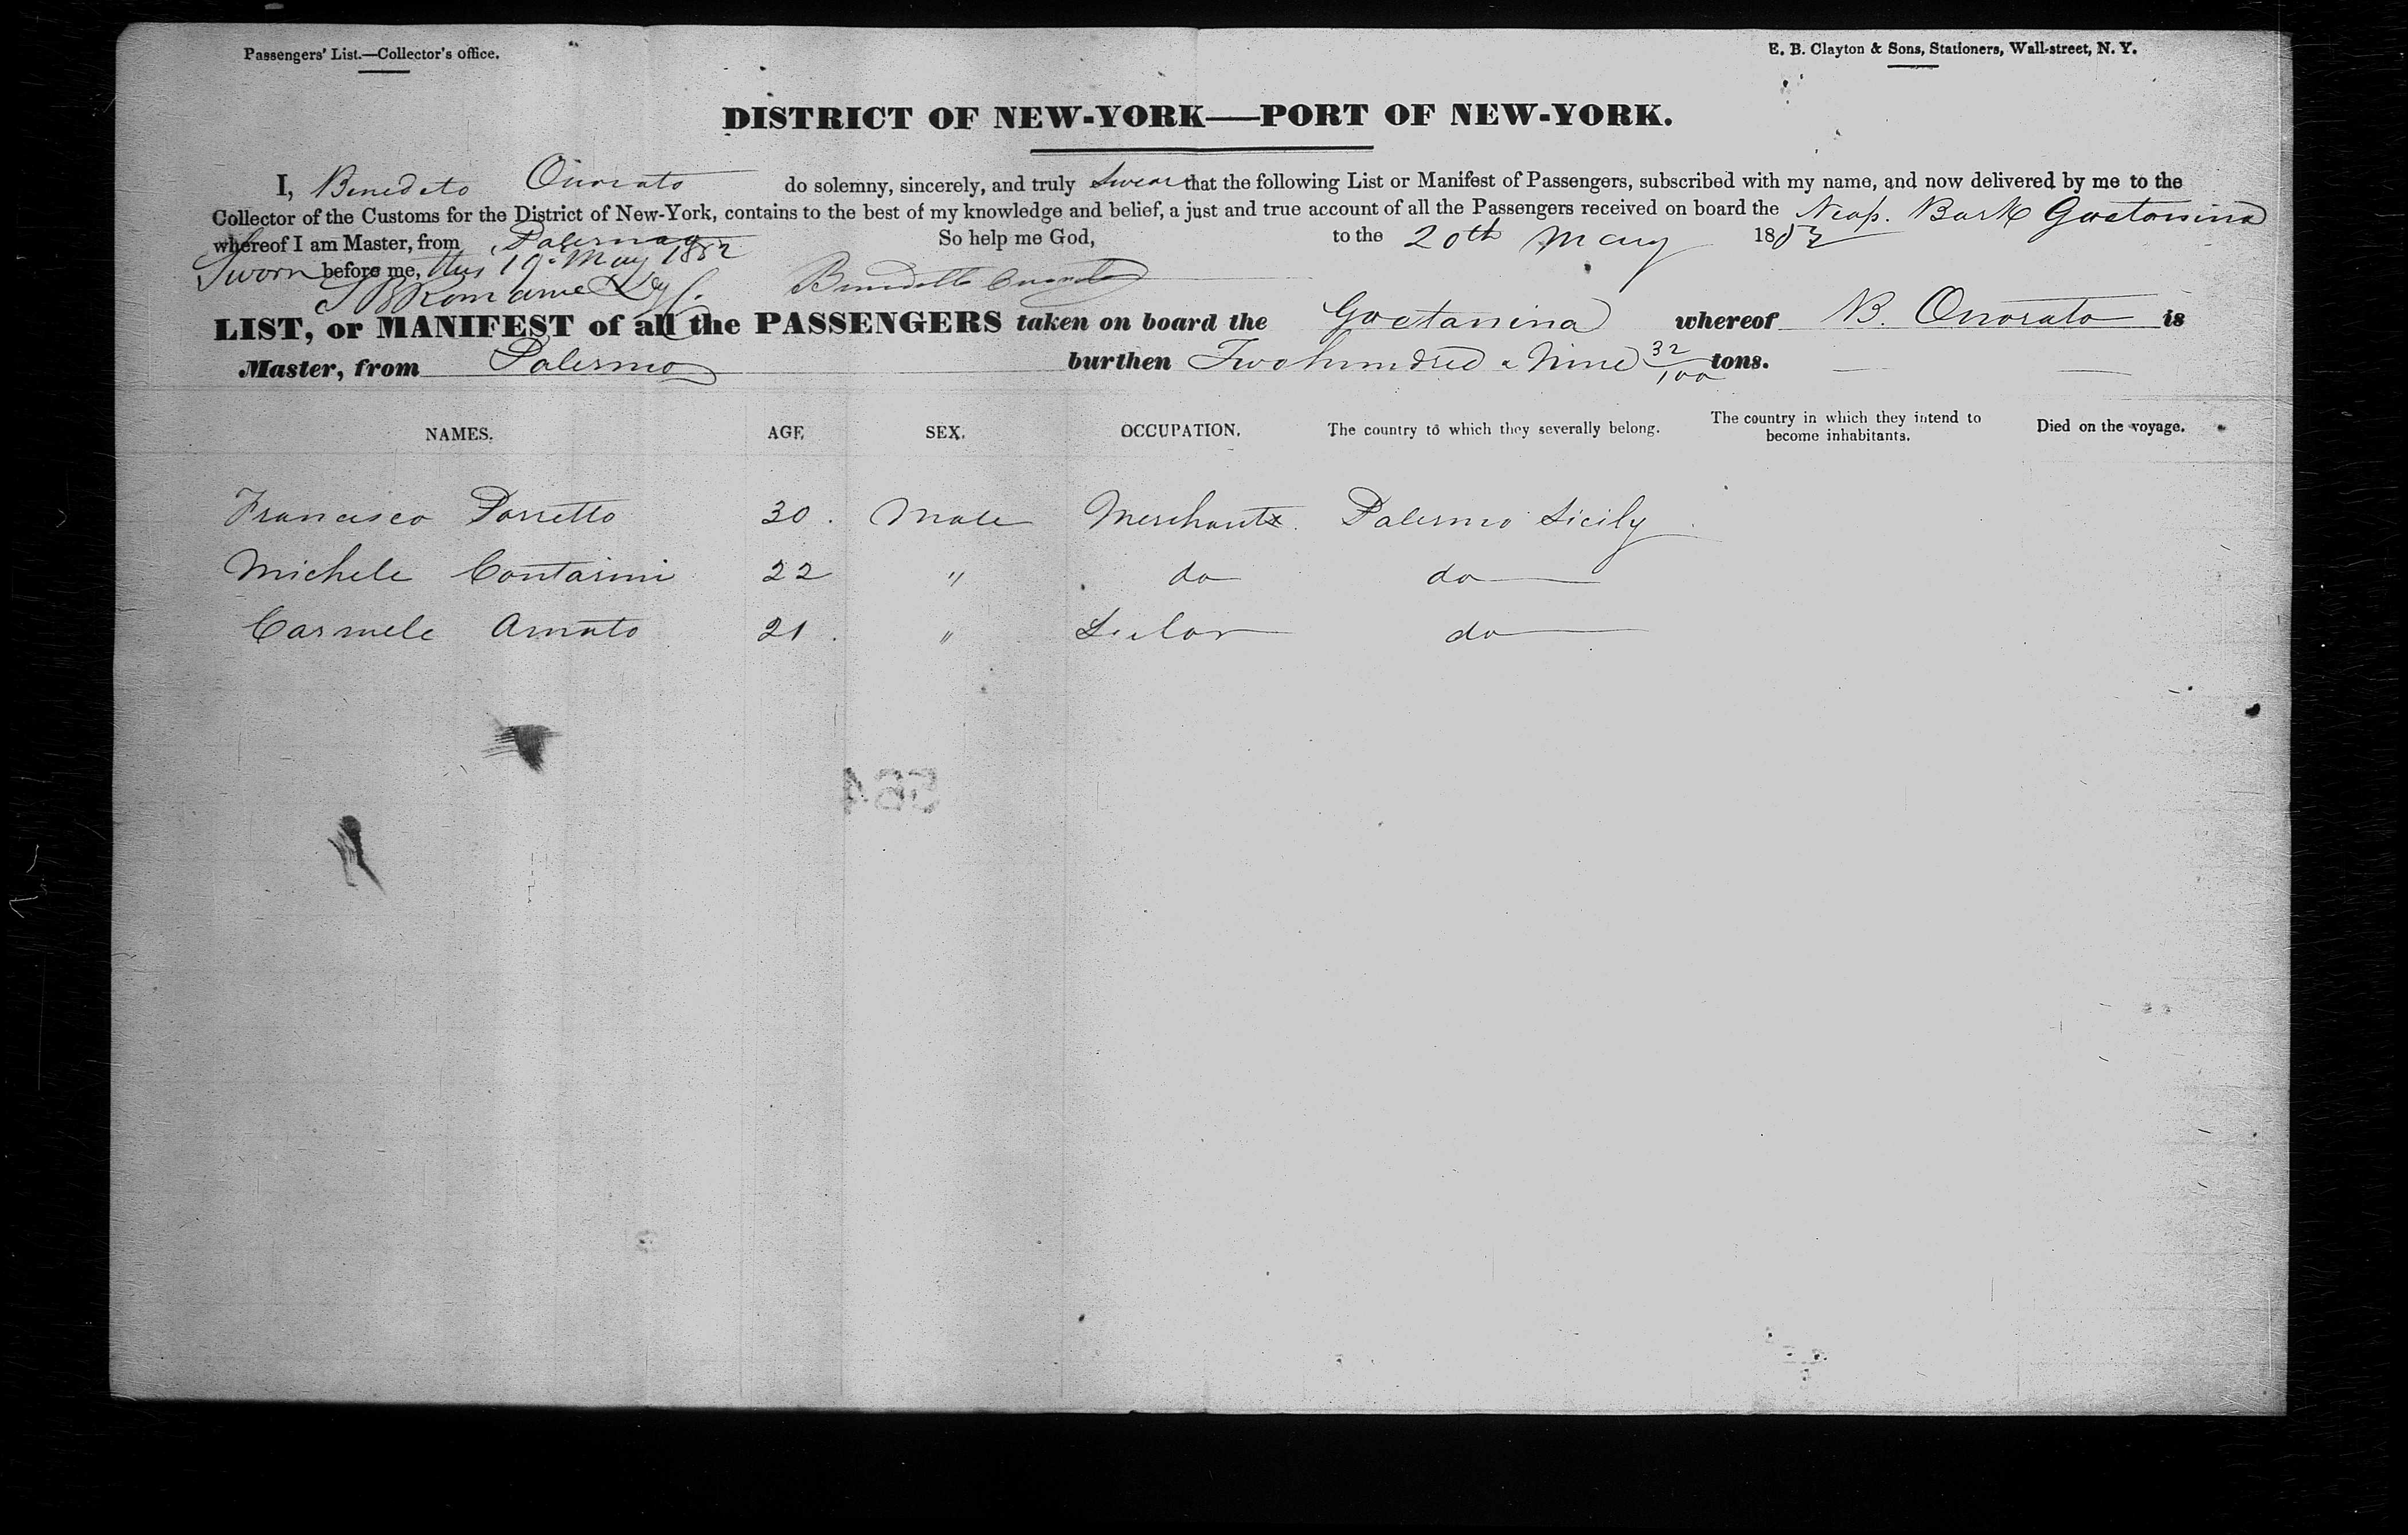 Passengers' List.—Collector's office.
E. B. Clayton & Sons, Stationers, Wall-street, N. Y.
DISTRICT OF NEW-YORK—PORT OF NEW-YORK.
I, Benedeto Onorato do solemny, sincerely, and truly swear that the following List or Manifest of Passengers, subscribed with my name, and now delivered by me to the
Collector of the Customs for the District of New-York, contains to the best of my knowledge and belief, a just and true account of all the Passengers received on board the Neap. Bark Gaetanina
whereof I am Master, from Palermo So help me God, to the 20th May 1852
Sworn before me, this 19 May 1852
Benedetto Onorato
LIST, or MANIFEST of all the PASSENGERS taken on board the Gaetanina whereof N. Onorato is
Master, from Palermo burthen Two hundred & Nine 32/100 tons.
NAMES. AGE SEX. OCCUPATION. The country to which they severally belong. The country in which they intend to become inhabitants. Died on the voyage.
Francisco Porretto 30. Male Merchant Palermo Sicily
Michele Contarini 22 " do do
Carmele Amato 21. " do
564